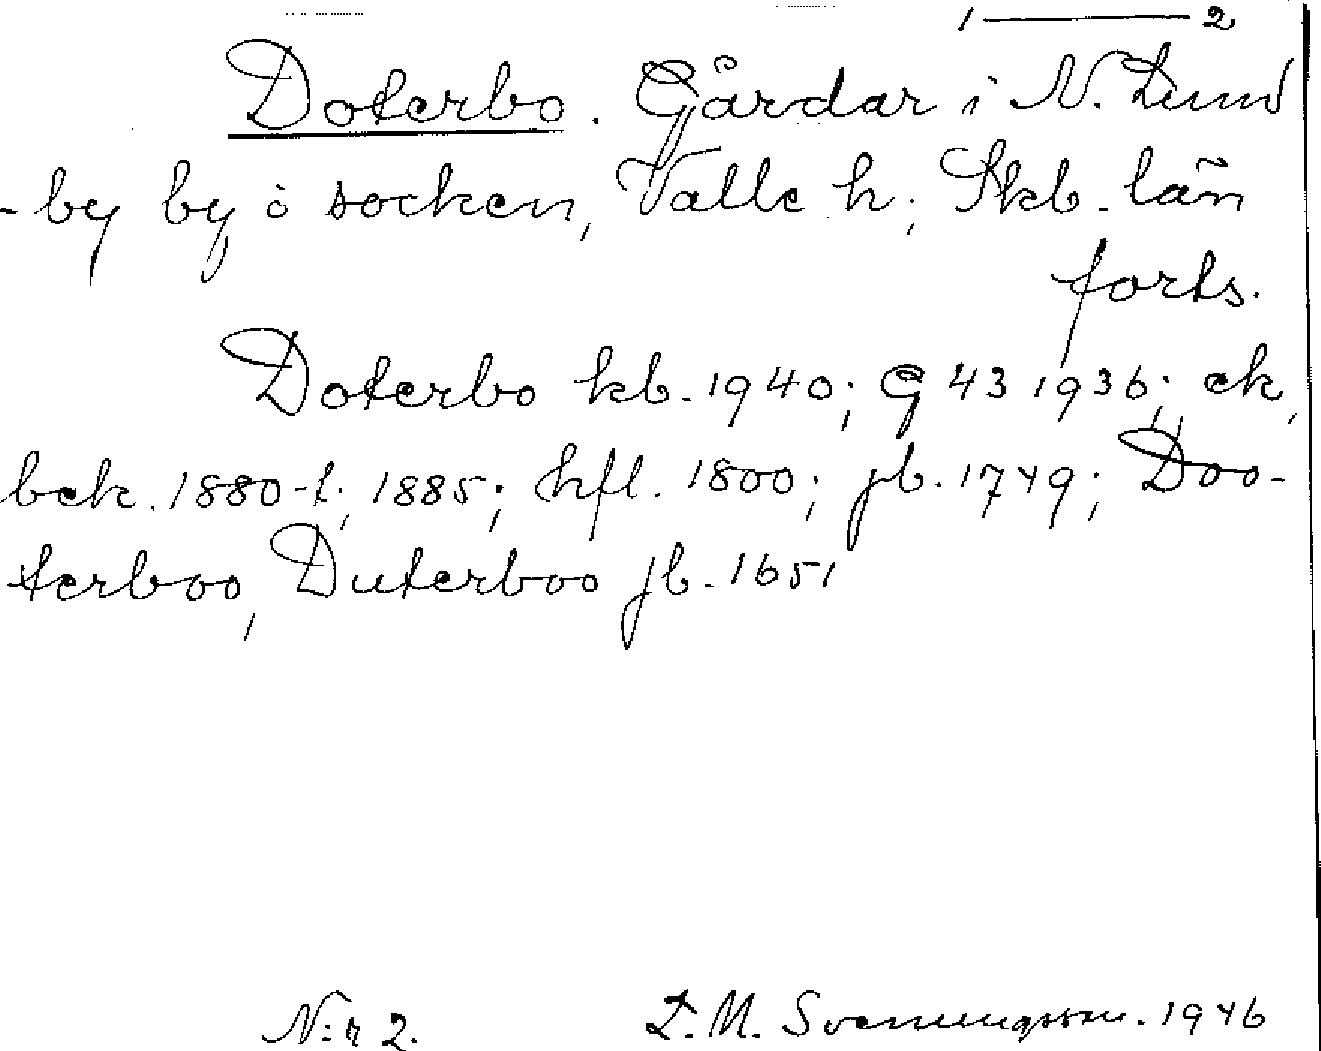 1 — 2
Doterbo. Gårdar i N. Lund
-by by o socken, Valle h; Skb. län
forts.
Doterbo kb. 1940; G 43 1936; ek,
bek. 1880-t; 1885; hfl. 1800; jb. 1749; Doo-
terboo, Duterboo jb. 1651
N:r 2. L. M. Svenungsson. 1946